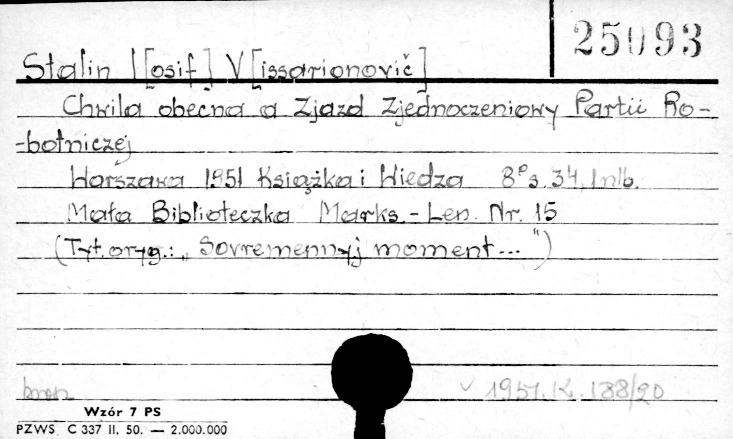 25093
Stalin I[osif] V[issarionovič]
Chwila obecna a Zjazd Zjednoczeniowy Partii Ro-
-botniczej
Warszawa 1951 Książka i Wiedza 8° s. 34, 1 nlb.
Mała Biblioteczka Marks.-Len. Nr. 15
(Tyt. oryg.: „Sovremennyj moment...")
1951.K.188/20
Wzór 7 PS
PZWS C 337 II. 50. — 2.000.000